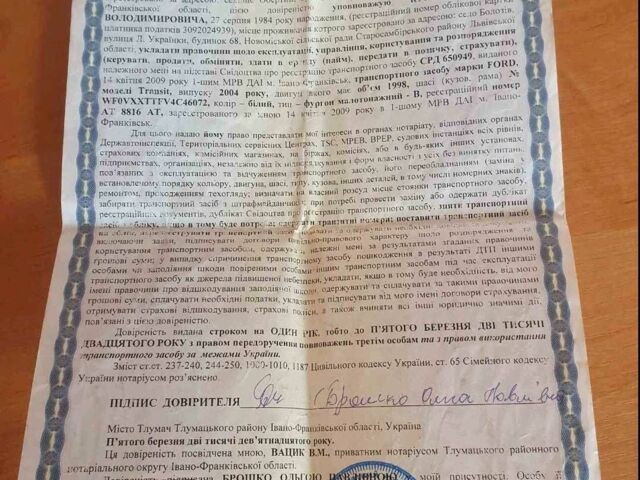 ВОЛОДИМИРОВИЧА, 27 серпня 1984 року народження, (реєстраційний номер облікової картки
платника податків 3092024939), місце проживання котрого зареєстровано за адресою: село Болотів,
вулиця Л. Українки, будинок 68, Новоміської сільської ради Старосамбірського району Львівської
області, укладати правочини щодо експлуатації, управління, користування та розпорядження
(керувати, продати, обміняти, здати в оренду (найм), передати в позичку, страхувати),
належного мені на підставі Свідоцтва про реєстрацію транспортного засобу СРД 650949, виданого
14 квітня 2009 року 1-шим МРВ ДАІ м. Івано-Франківськ, транспортного засобу марки FORD,
моделі Transit, випуск 2004 року, двигун якого має об'єм 1998, шасі (кузов, рама) №
WF0VXXTTFV4C46072, колір – білий, тип – фургон малотонажний - В, реєстраційний номер
АТ 8816 АТ, зареєстрованого за мною 14 квітня 2009 року в 1-шому МРВ ДАІ м. Івано-
Франківськ.
Для цього надаю йому право представляти мої інтереси в органах нотаріату, відповідних органах
Державтоінспекції, Територіальних сервісних Центрах, ТSC, МРЕВ, ВРЕР, судових інстанціях всіх рівнів,
страхових компаніях, комісійних магазинах, на біржах, комісіях, або в будь-яких інших установах,
підприємствах, організаціях, незалежно від їх підпорядкування і форм власності з усіх без винятку питань,
пов'язаних з експлуатацією та відчуженням транспортного засобу, його переобладнанням (заміна у
встановленому порядку кольору, двигуна, шасі, типу, кузова, інших деталей, в тому числі номерних знаків),
ремонтом, проходженням техогляду; визначати на власний розсуд місце стоянки транспортного засобу,
забирати транспортний засіб з штрафмайданчика; при потребі провести заміну або одержати дублікат
реєстраційних документів, дублікат Свідоцтва про реєстрацію транспортного засобу, зняти транспортний
засіб з обліку, якщо в тому буде потреба; одержати транзитні номери; поставити транспортний засіб
включаючи заяви, підписувати договори цивільно-правового характеру щодо розпорядження та
користування транспортним засобом, одержувати належні мені за результатами згаданих правочинів
грошові суми; у випадку спричинення транспортному засобу пошкодження в результаті ДТП іншими
особами чи заподіяння шкоди повіреним особами іншим транспортним засобам під час експлуатації
транспортного засобу як джерела підвищеної небезпеки, укладати, якщо в тому буде необхідність, від мого
імені правочини про відшкодування заподіяної шкоди, одержувати та сплачувати за такими правочинами
грошові суми, сплачувати необхідні податки, укладати та підписувати від мого імені договори страхування,
отримувати страхові відшкодування, страхові поліси, а також вчиняти всі інші юридичні значимі дії,
пов'язані з цією довіреністю.
Довіреність видана строком на ОДИН РІК, тобто до П'ЯТОГО БЕРЕЗНЯ ДВІ ТИСЯЧІ
ДВАДЦЯТОГО РОКУ з правом передоручення повноважень третім особам та з правом використання
транспортного засобу за межами України.
Зміст ст.ст. 237-240, 244-250, 1000-1010, 1187 Цивільного кодексу України, ст. 65 Сімейного кодексу
України нотаріусом роз'яснено.
ПІДПИС ДОВІРИТЕЛЯ (Брошко Ольга Павлівна
Місто Тлумач Тлумацького району Івано-Франківської області, Україна
П'ятого березня дві тисячі дев'ятнадцятого року.
Ця довіреність посвідчена мною, ВАЦИК В.М., приватним нотаріусом Тлумацького районного
нотаріального округу Івано-Франківської області.
Довіреність підписана БРОШКО ОЛЬГОЮ ПАВЛІВНОЮ у моїй присутності. Особу її